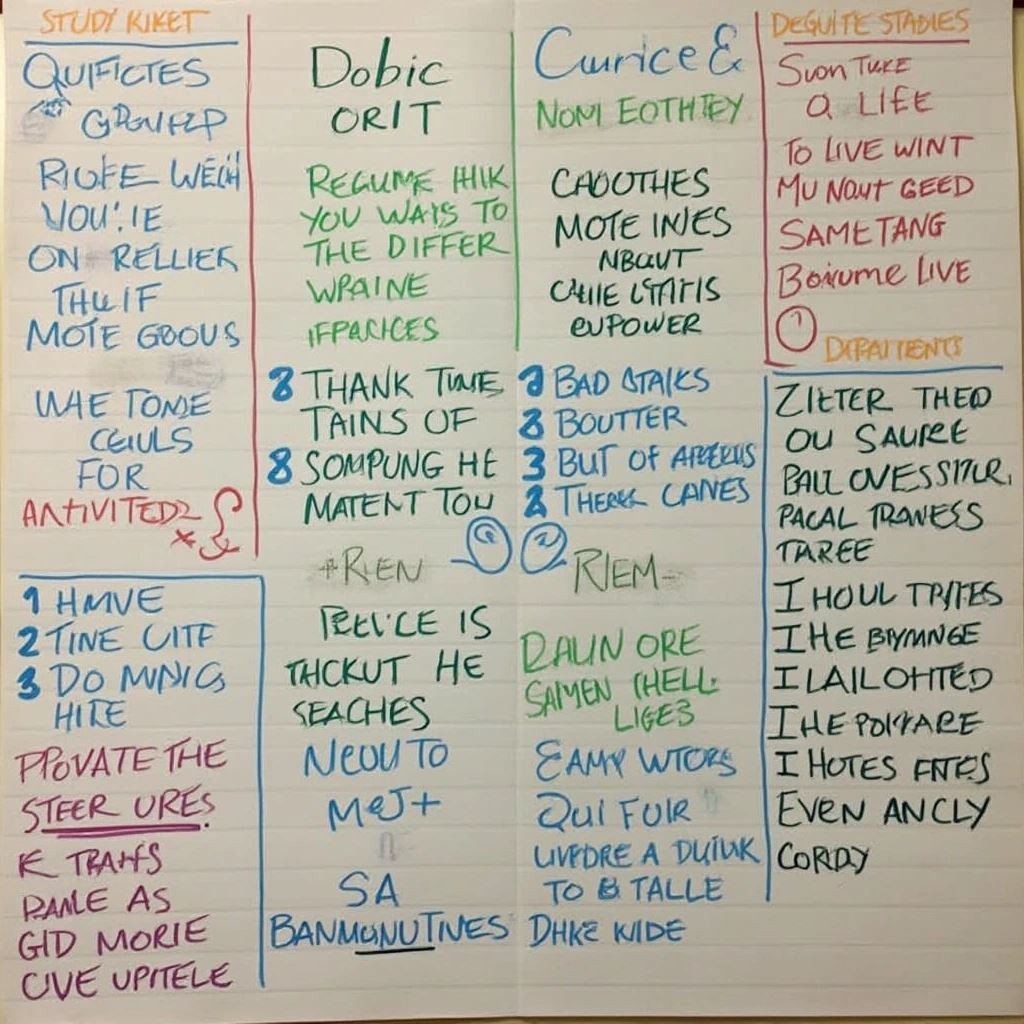 STUDY KIKET
QUIFICTES
GROUFLP
RIOFE WECH
VOU'.IE
ON RELLIER
THLIF
MOTE GOOUS
WHE TONE
CEIULS
FOR
ANTIVITEDZ
1 HMVE
2 TINE CITF
3 DO MINIG
HITE
PROVATE THE
STEER URES.
K TRAHS
RAMLE AS
GID MORIE
CIVE UPITELE
Dobic
ORIT
REGUME HIIK
YOU WAYS TO
THE DIFFER
WPAINE
IFPACICES
8 THANK TIME
TAINS OF
8 SOMPUNG HE
MATENT TOU
+RIEN
IS
THCKUT HE
SEACHES
NEOU TO
MEJ+
SA
BANMUNUTINES
Curice &
NOM EOTHTEY
CAOOTHES
MOTE INVES
NBOUT
CAIIE
EUPOWER
BAD STAIKS
2 BOUTTER
3 BUT OF
2 CANES
RIEM-
DALIN ORE
SAMEN CHELL.
LIGES
EAMY WTORS
QUI FUIR
UVFDRE A DUIUK
TO B TALLE
DHKE KIDE
DEGUITE STADIES
SUON TUKE
A LIFE
TO LIVE WINT
MU NOUT GEED
SAMETANG
BOIXUME LIVE
1
DEPAITIENTS
ZIETER THEO
OU SAURE
BALL OVESSITLR.
PACAL TRANESS
TAREE
I HOUL TRITES
IHE BYMINGE
I LAILOHTED
IHE POIYARE
I HOTES FNTES
EVEN ANCLY
CORDY